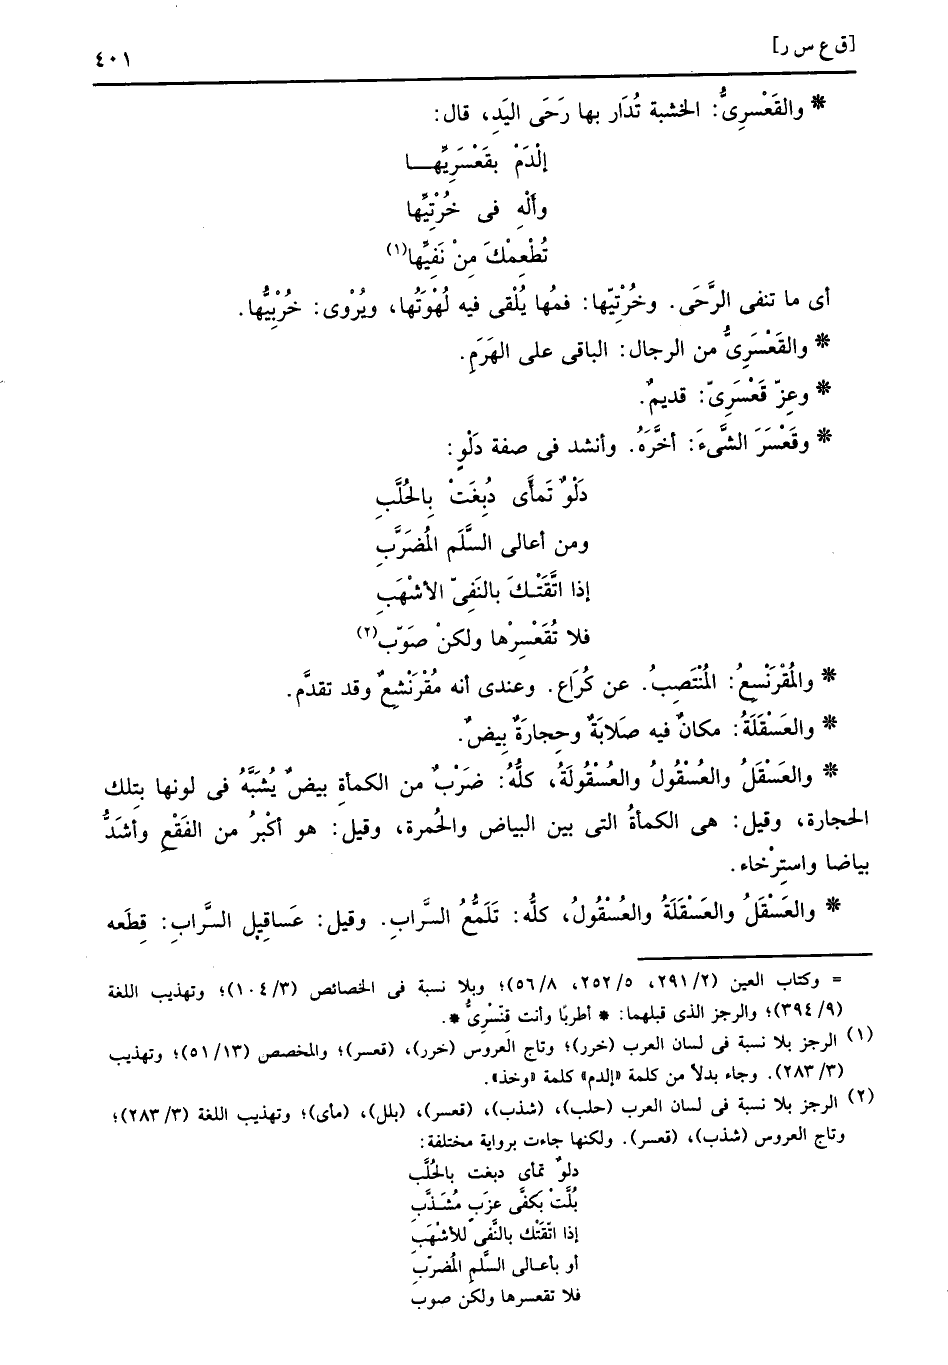 [ق ع س ر]
٤٠١
* والقَعْسرِىُّ: الخشبة تُدَار بها رَحَى اليَدِ، قال:
إلْدَمْ بقَعْسَرِيِّهـــا
وأَلْهِ فى خُرْتِيِّها
تُطْعِمْكَ مِنْ نَفِيِّها(١)
أى ما تنفى الرَّحَى. وخُرْتِيّها: فمُها يُلْقى فيه لُهْوَتُها، ويُرْوى: خُرْبِيُّها.
* والقَعْسَرِىُّ من الرجال: الباقى على الهَرَمِ.
* وعِزّ قَعْسَرِىّ: قديمٌ.
* وقَعْسَرَ الشَّىءَ: أخَّرَهُ. وأنشد فى صفة دَلْوٍ:
دَلْوٌ تَمأَّى دُبِغَتْ بِالحُلَّبِ
ومن أعالى السَّلَم المُضَرَّبِ
إذا اتَّقَتْـكَ بالنَفِىّ الأشْهَبِ
فلا تُقَعْسِرْها ولكنْ صَوّب(٢)
* والمُقْرَنْسِعُ: المُنْتَصِبُ. عن كُرَاع. وعندى أنه مُقْرَنْشِعٌ وقد تقدَّم.
* والعَسْقَلَةُ: مكانٌ فيه صَلابَةٌ وحِجارَةٌ بِيضٌ.
* والعَسْقَلُ والعُسْقُولُ والعُسْقُولَةُ، كلُّهُ: ضَرْبٌ من الكمأةِ بيضٌ يُشَبَّهُ فى لونها بتلك
الحجارة، وقيل: هى الكمأةُ التى بين البياض والحُمرة، وقيل: هو أكْبرُ من الفَقْعِ وأشَدُّ
بياضا واسترْخاء.
* والعَسْقَلُ والعَسْقَلَةُ والعُسْقُولُ، كلُّه: تَلَمُّعُ السَّرابِ. وقيل: عَساقِيل السَّرابِ: قِطَعه
= وكتاب العين (٢٩١/٢، ٢٥٢/٥، ٥٦/٨)؛ وبلا نسبة فى الخصائص (١٠٤/٣)؛ وتهذيب اللغة
(٣٩٤/٩)؛ والرجز الذى قبلهما: * أطربًا وأنت قِنّسْرِىُّ *.
(١) الرجز بلا نسبة فى لسان العرب (خرر)؛ وتاج العروس (خرر)، (قعسر)؛ والمخصص (٥١/١٣)؛ وتهذيب
(٢٨٣/٣). وجاء بدلاً من كلمة «إلدم» كلمة «وخذ».
(٢) الرجز بلا نسبة فى لسان العرب (حلب)، (شذب)، (قعسر)، (بلل)، (مأى)؛ وتهذيب اللغة (٢٨٣/٣)؛
وتاج العروس (شذب)، (قعسر). ولكنها جاءت برواية مختلفة:
دلوٌ تمأى دبغت بالحُلَّب
بُلَّتْ بكفَّى عزَبٍ مُشَـذَّبِ
إذا اتّقَتْك بالنَّفى للأشْهَبِ
أو بأعـالى السلَّمِ المُضرّبِ
فلا تقعسرها ولكن صوب